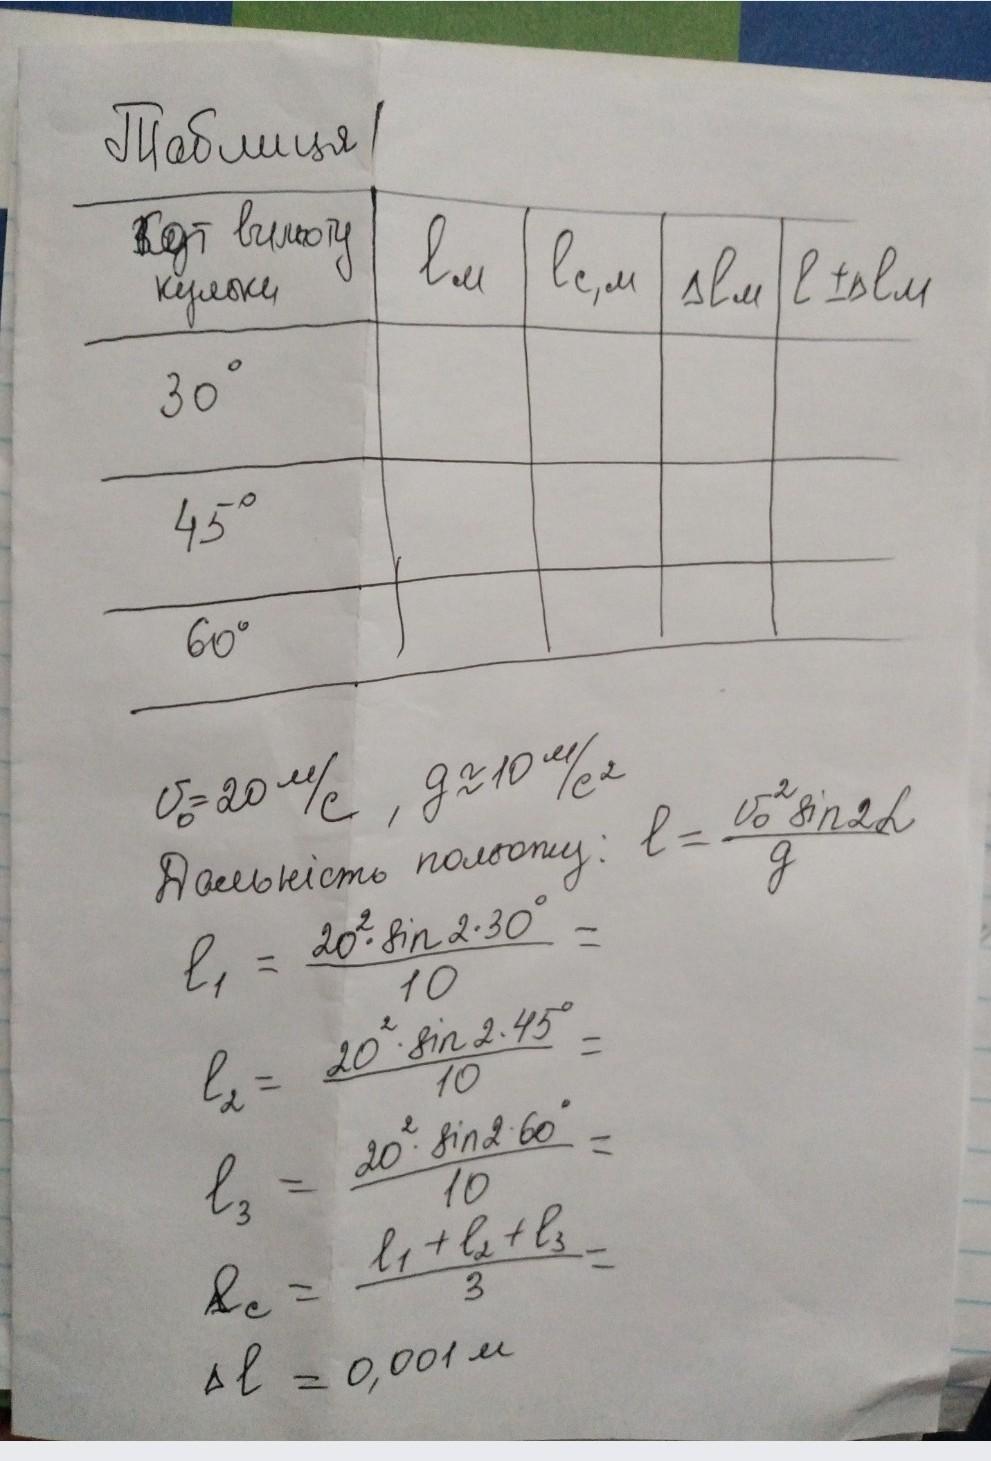 Таблиця
Кут вильоту кульки | lм | lс,м | Δlм | l±Δlм
30°
45°
60°
υ₀=20 м/с , g≈10 м/с²
Дальність польоту: l = υ₀² sin2α / g
l₁ = 20²·sin2·30° / 10 =
l₂ = 20²·sin2·45° / 10 =
l₃ = 20²·sin2·60° / 10 =
lс = l₁+l₂+l₃ / 3 =
Δl = 0,001 м